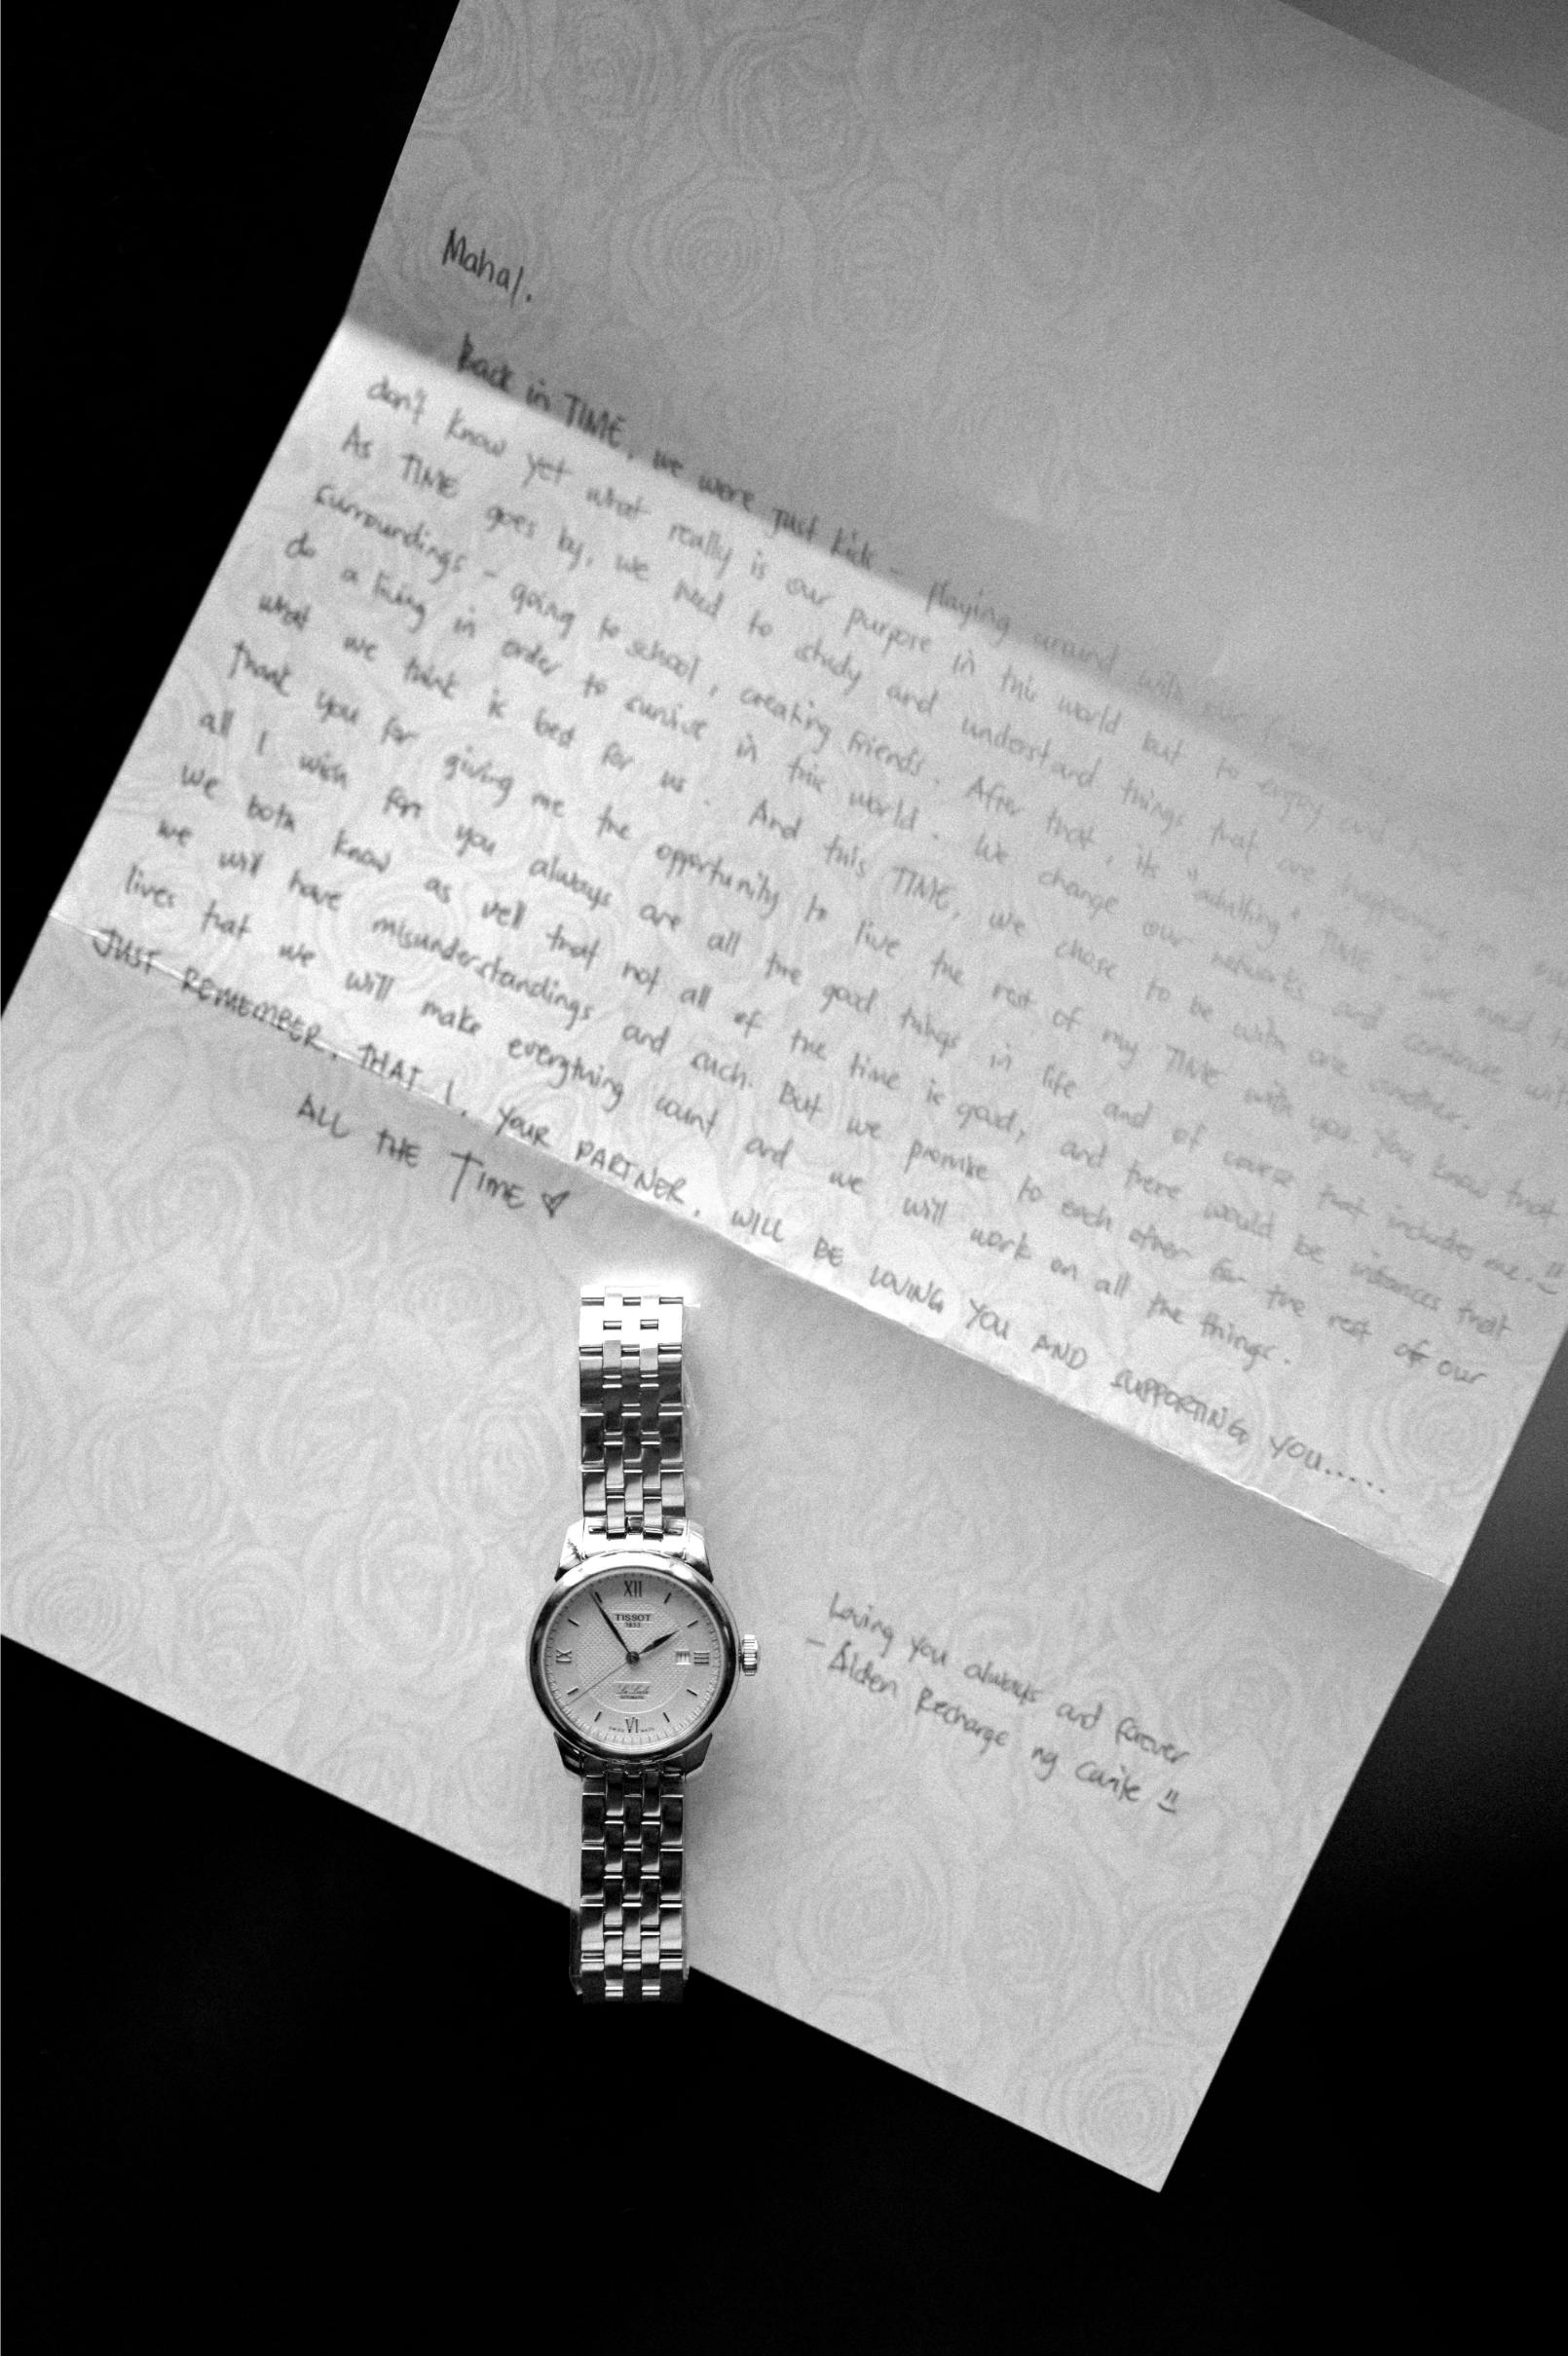 Mahal.
Back in TIME, we were just kids - playing around with our
don't know yet what really is our purpose in this world but to enjoy and have
As TIME goes by, we need to study and understand things that are happening in our
surroundings - going to school, creating friends. After that, its "adulting" TIME - we need to
do a living in order to survive in this world. We change our networks and continue with
what we think is best for us. And this TIME, we chose to be with one another.
Thank you for giving me the opportunity to live the rest of my TIME with you. You know that
all I wish for you always are all the good things in life and of course that includes me. "
we both know as well that not all of the time is good, and there would be instances that
we will have misunderstandings and such. But we promise to each other for the rest of our
lives that we will make everything count and we will work on all the things.
JUST REMEMBER, THAT I, YOUR PARTNER, WILL BE LOVING YOU AND SUPPORTING YOU.....
ALL THE TIME ♡
XII
TISSOT
1853
IX
III
Le Locle
AUTOMATIC
VI
SWISS MADE
Loving you always and forever
- Alden Recharge ng Cavite "